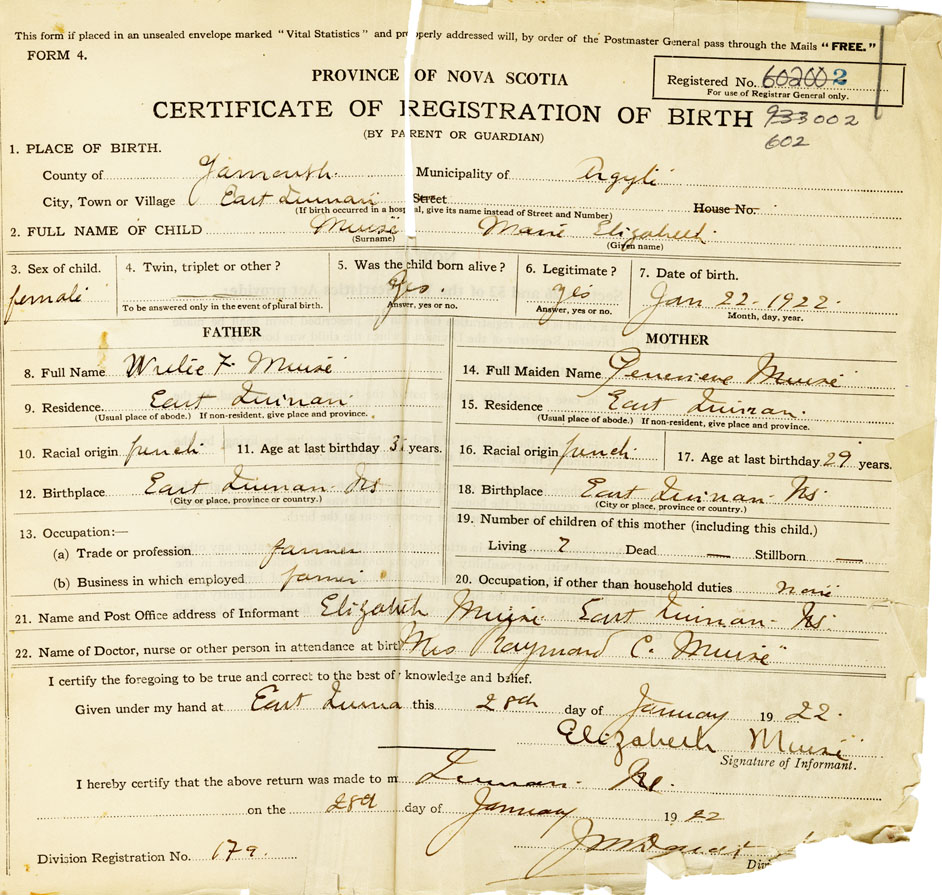 This form if placed in an unsealed envelope marked "Vital Statistics" and properly addressed will, by order of the Postmaster General pass through the Mails "FREE."
FORM 4.
PROVINCE OF NOVA SCOTIA
Registered No. 602002
For use of Registrar General only.
CERTIFICATE OF REGISTRATION OF BIRTH 933002
(BY PARENT OR GUARDIAN) 602
1. PLACE OF BIRTH.
County of Yarmouth Municipality of Argyle
City, Town or Village East Quinan Street House No.
(If birth occurred in a hospital, give its name instead of Street and Number)
2. FULL NAME OF CHILD Muise Marie Elizabeth
(Surname) (Given name)
3. Sex of child. 4. Twin, triplet or other? 5. Was the child born alive? 6. Legitimate? 7. Date of birth.
female — Yes. yes Jan 22 - 1922
To be answered only in the event of plural birth. Answer, yes or no. Answer, yes or no. Month, day, year.
FATHER
8. Full Name Wilie F. Muise
9. Residence. East Quinan
(Usual place of abode.) If non-resident, give place and province.
10. Racial origin french 11. Age at last birthday 31 years.
12. Birthplace East Quinan Ns
(City or place, province or country.)
13. Occupation:—
(a) Trade or profession farmer
(b) Business in which employed farmer
MOTHER
14. Full Maiden Name Genevieve Muise
15. Residence East Quinan.
(Usual place of abode.) If non-resident, give place and province.
16. Racial origin french 17. Age at last birthday 29 years.
18. Birthplace East Quinan Ns
(City or place, province or country.)
19. Number of children of this mother (including this child.)
Living 7 Dead — Stillborn —
20. Occupation, if other than household duties none
21. Name and Post Office address of Informant Elizabeth Muise East Quinan - Ns
22. Name of Doctor, nurse or other person in attendance at birth Mrs Raymond C. Muise
I certify the foregoing to be true and correct to the best of knowledge and belief.
Given under my hand at East Quina this 28th day of January 1922.
Elizabeth Muise
Signature of Informant.
I hereby certify that the above return was made to m Quinan - Ns.
on the 28th day of January 1922
Division Registration No. 179.